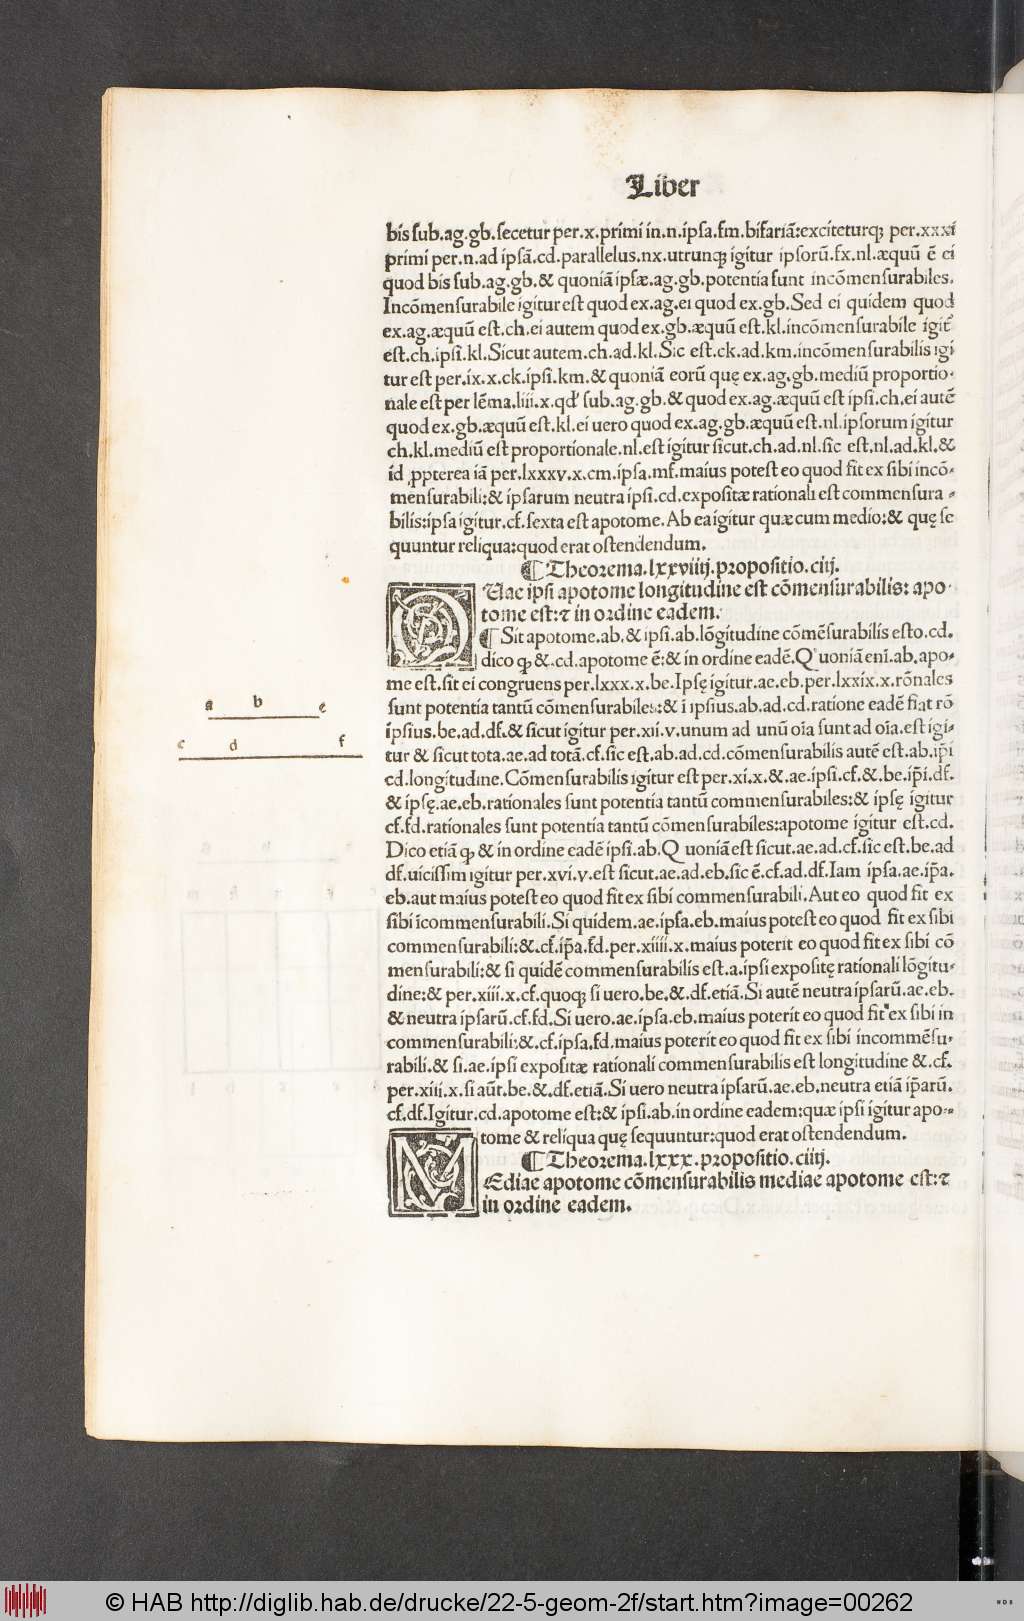 Liber
bis sub.ag.gb.secetur per.x.primi in.n.ipsa.fm.bifariā:exciteturq̨ per.xxxi
primi per.n.ad ipsā.cd.parallelus.nx.utrunq̨ igitur ipsorū.fx.nl.æquū ē ei
quod bis sub.ag.gb.& quoniā ipsæ.ag.gb.potentia sunt incōmensurabiles.
Incōmensurabile igitur est quod ex.ag.ei quod ex.gb.Sed ei quidem quod
ex.ag.æquū est.ch.ei autem quod ex.gb.æquū est.kl.incōmensurabile igit᷒
est.ch.ipsi.kl.Sicut autem.ch.ad.kl.Sic est.ck.ad.km.incōmensurabilis igi
tur est per.ix.x.ck.ipsi.km.& quoniā eorū quę ex.ag.gb.mediū proportio-
nale est per lēma.liii.x.qd' sub.ag.gb.& quod ex.ag.æquū est ipsi.ch.ei autē
quod ex.gb.æquū est.kl.ei uero quod ex.ag.gb.æquū est.nl.ipsorum igitur
ch.kl.mediū est proportionale.nl.est igitur sicut.ch.ad.nl.sic est.nl.ad.kl.&
id ꝓpterea iā per.lxxxv.x.cm.ipsa.mf.maius potest eo quod fit ex sibi incō-
mensurabili:& ipsarum neutra ipsi.cd.expositæ rationali est commensura-
bilis:ipsa igitur.cf.sexta est apotome.Ab ea igitur quæ cum medio:& quę se
quuntur reliqua:quod erat ostendendum.
¶ Theorema.lxxviiij.propositio.ciij.
DUae ipsi apotome longitudine est cōmensurabilis: apo-
tome est:⁊ in ordine eadem.
¶ Sit apotome.ab.& ipsi.ab.lōgitudine cōmēsurabilis esto.cd.
dico q̨ &.cd.apotome ē:& in ordine eadē.Quoniā enī.ab.apo-
me est.sit ei congruens per.lxxx.x.be.Ipsę igitur.ae.eb.per.lxxix.x.rōnales
sunt potentia tantū cōmensurabiles:& ī ipsius.ab.ad.cd.ratione eadē fiat rō
īpsius.be.ad.df.& sicut igitur per.xii.v.unum ad unū oīa sunt ad oīa.est igi-
tur & sicut tota.ae.ad totā.cf.sic est.ab.ad.cd.cōmensurabilis autē est.ab.ip̄i
cd.longitudine.Cōmensurabilis igitur est per.xi.x.&.ae.ipsi.cf.&.be.ip̄i.df.
& ipsę.ae.eb.rationales sunt potentia tantū commensurabiles:& ipsę igitur
cf.fd.rationales sunt potentia tantū cōmensurabiles:apotome igitur est.cd.
Dico etiā q̨ & in ordine eadē ipsi.ab.Quoniā est sicut.ae.ad.cf.sic est.be.ad
df.uicissim igitur per.xvi.v.est sicut.ae.ad.eb.sic ē.cf.ad.df.Iam ipsa.ae.ip̄a.
eb.aut maius potest eo quod fit ex sibi commensurabili.Aut eo quod fit ex
sibi īcommensurabili.Si quidem.ae.ipsa.eb.maius potest eo quod fit ex sibi
commensurabili:&.cf.ip̄a.fd.per.xiiii.x.maius poterit eo quod fit ex sibi cō
mensurabili:& si quidē commensurabilis est.a.ipsi expositę rationali lōgitu-
dine:& per.xiii.x.cf.quoq̨ si uero.be.&.df.etiā.Si autē neutra ipsarū.ae.eb.
& neutra ipsarū.cf.fd.Si uero.ae.ipsa.eb.maius poterit eo quod fit ex sibi in
commensurabili:&.cf.ipsa.fd.maius poterit eo quod fit ex sibi incommēsu-
rabili.& si.ae.ipsi expositæ rationali commensurabilis est longitudine &.cf.
per.xiii.x.si aūt.be.&.df.etiā.Si uero neutra ipsarū.ae.eb.neutra etiā ip̄arū.
cf.df.Igitur.cd.apotome est:& ipsi.ab.in ordine eadem:quæ ipsi igitur apo-
tome & reliqua quę sequuntur:quod erat ostendendum.
¶ Theorema.lxxx.propositio.ciiij.
MEdiae apotome cōmensurabilis mediae apotome est:⁊
in ordine eadem.
a b e
c d f
© HAB http://diglib.hab.de/drucke/22-5-geom-2f/start.htm?image=00262